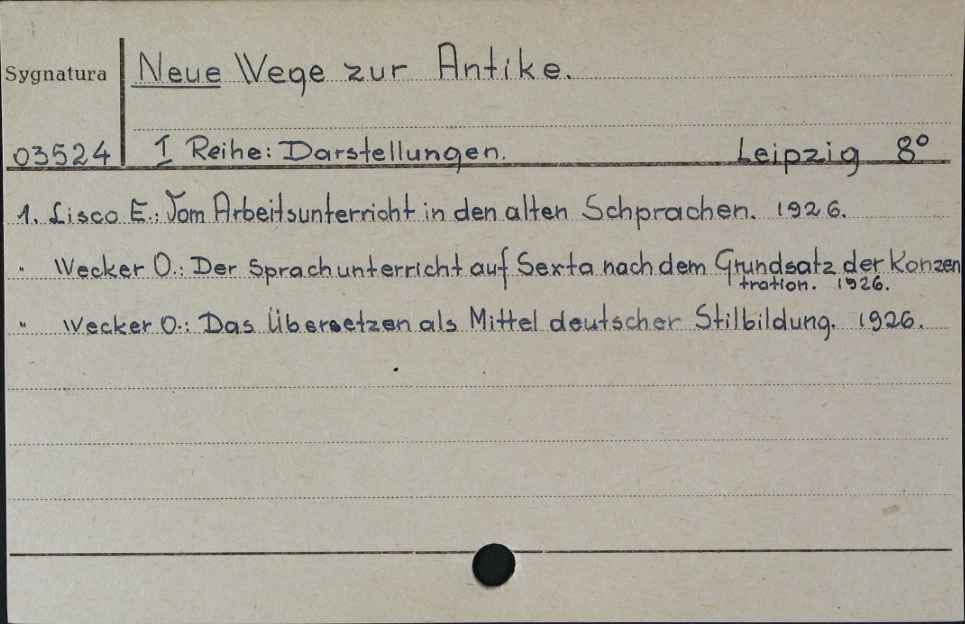 Sygnatura
Neue Wege zur Antike.
03524
I Reihe: Darstellungen. Leipzig 8°
1. Lisco E.: Vom Arbeitsunterricht in den alten Schprachen. 1926.
" Wecker O.: Der Sprachunterricht auf Sexta nach dem Grundsatz der Konzen
tration. 1926.
" Wecker O.: Das Übersetzen als Mittel deutscher Stilbildung. 1926.